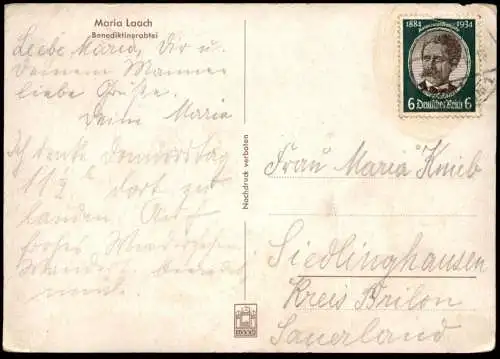 Maria Laach
Benediktinerabtei
Liebe Maria, Dir u.
Deinem Manne
liebe Grüße.
Deine Maria
Ich denke Donnerstag
11 ½ dort zu
landen. Auf
frohes Wiedersehen
Nachdruck verboten
1884 1934
6 Deutsches Reich 6
Frau Maria Knieb
Siedlinghausen
Kreis Brilon
Sauerland